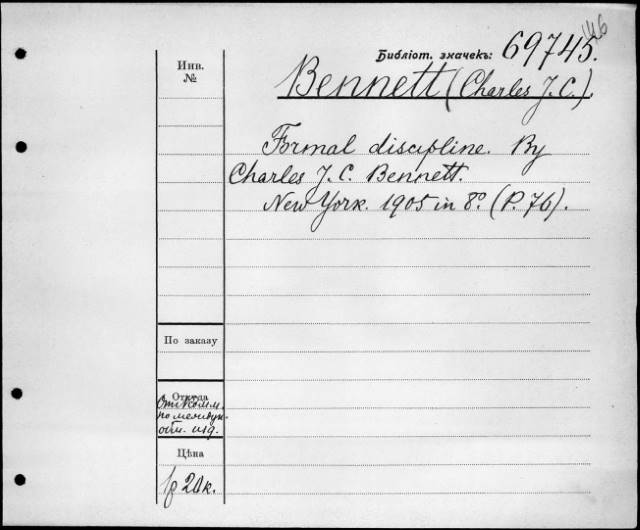 146
Библіот. значекъ: 69745.
Инв.
№
Bennett (Charles J. C.).
Formal discipline. By
Charles J. C. Bennett.
New York. 1905 in 8º. (P. 76).
По заказу
Откуда
От Комм.
по междун.
обм. изд.
Цѣна
1р 20к.